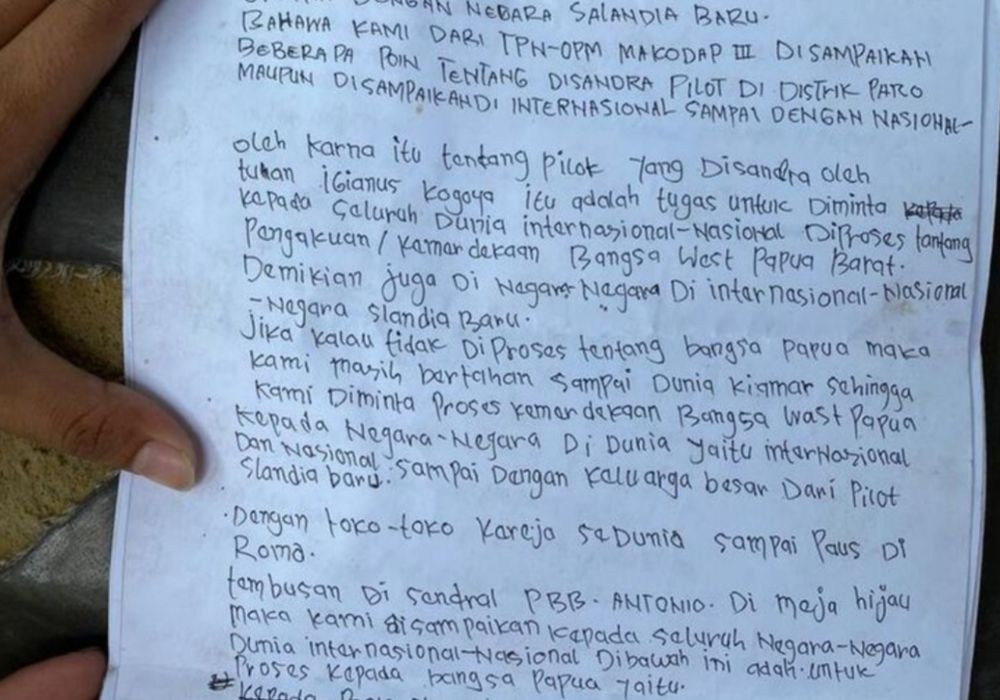 DENGAN NEGARA SALANDIA BARU.
BAHAWA KAMI DARI TPN-OPM MAKODAP III DISAMPAIKAN
BEBERAPA POIN TENTANG DISANDRA PILOT DI DISTRIK PARO
MAUPUN DISAMPAIKANDI INTERNASIONAL SAMPAI DENGAN NASIONAL-
oleh karna itu tentang pilot yang Disandra oleh
tuhan iGianus Kogoya itu adalah tugas untuk Diminta
kepada seluruh Dunia internasional-Nasional DiProses tantang
Pengakuan/kemardekaan Bangsa West Papua Barat.
Demikian juga Di Negara-Negara Di internasional-Nasional
-Negara slandia Baru.
Jika kalau tidak DiProses tentang bangsa Papua maka
kami masih bertahan sampai Dunia kiamar sehingga
kami Diminta Proses kemerdekaan Bangsa Wast Papua
kepada Negara-Negara Di Dunia yaitu interNasional
Dan Nasional. sampai Dengan kaluarga besar Dari Pilot
slandia baru.
.Dengan toko-toko Kareja seDunia sampai Paus Di
Roma.
tembusan Di sendral PBB. ANTONIO. Di meja hijau
maka kami disampaikan kepada seluruh Negara-Negara
Dunia internasional-Nasional Dibawah ini adah. untuk
Proses kepada bangsa Papua yaitu.
kepada